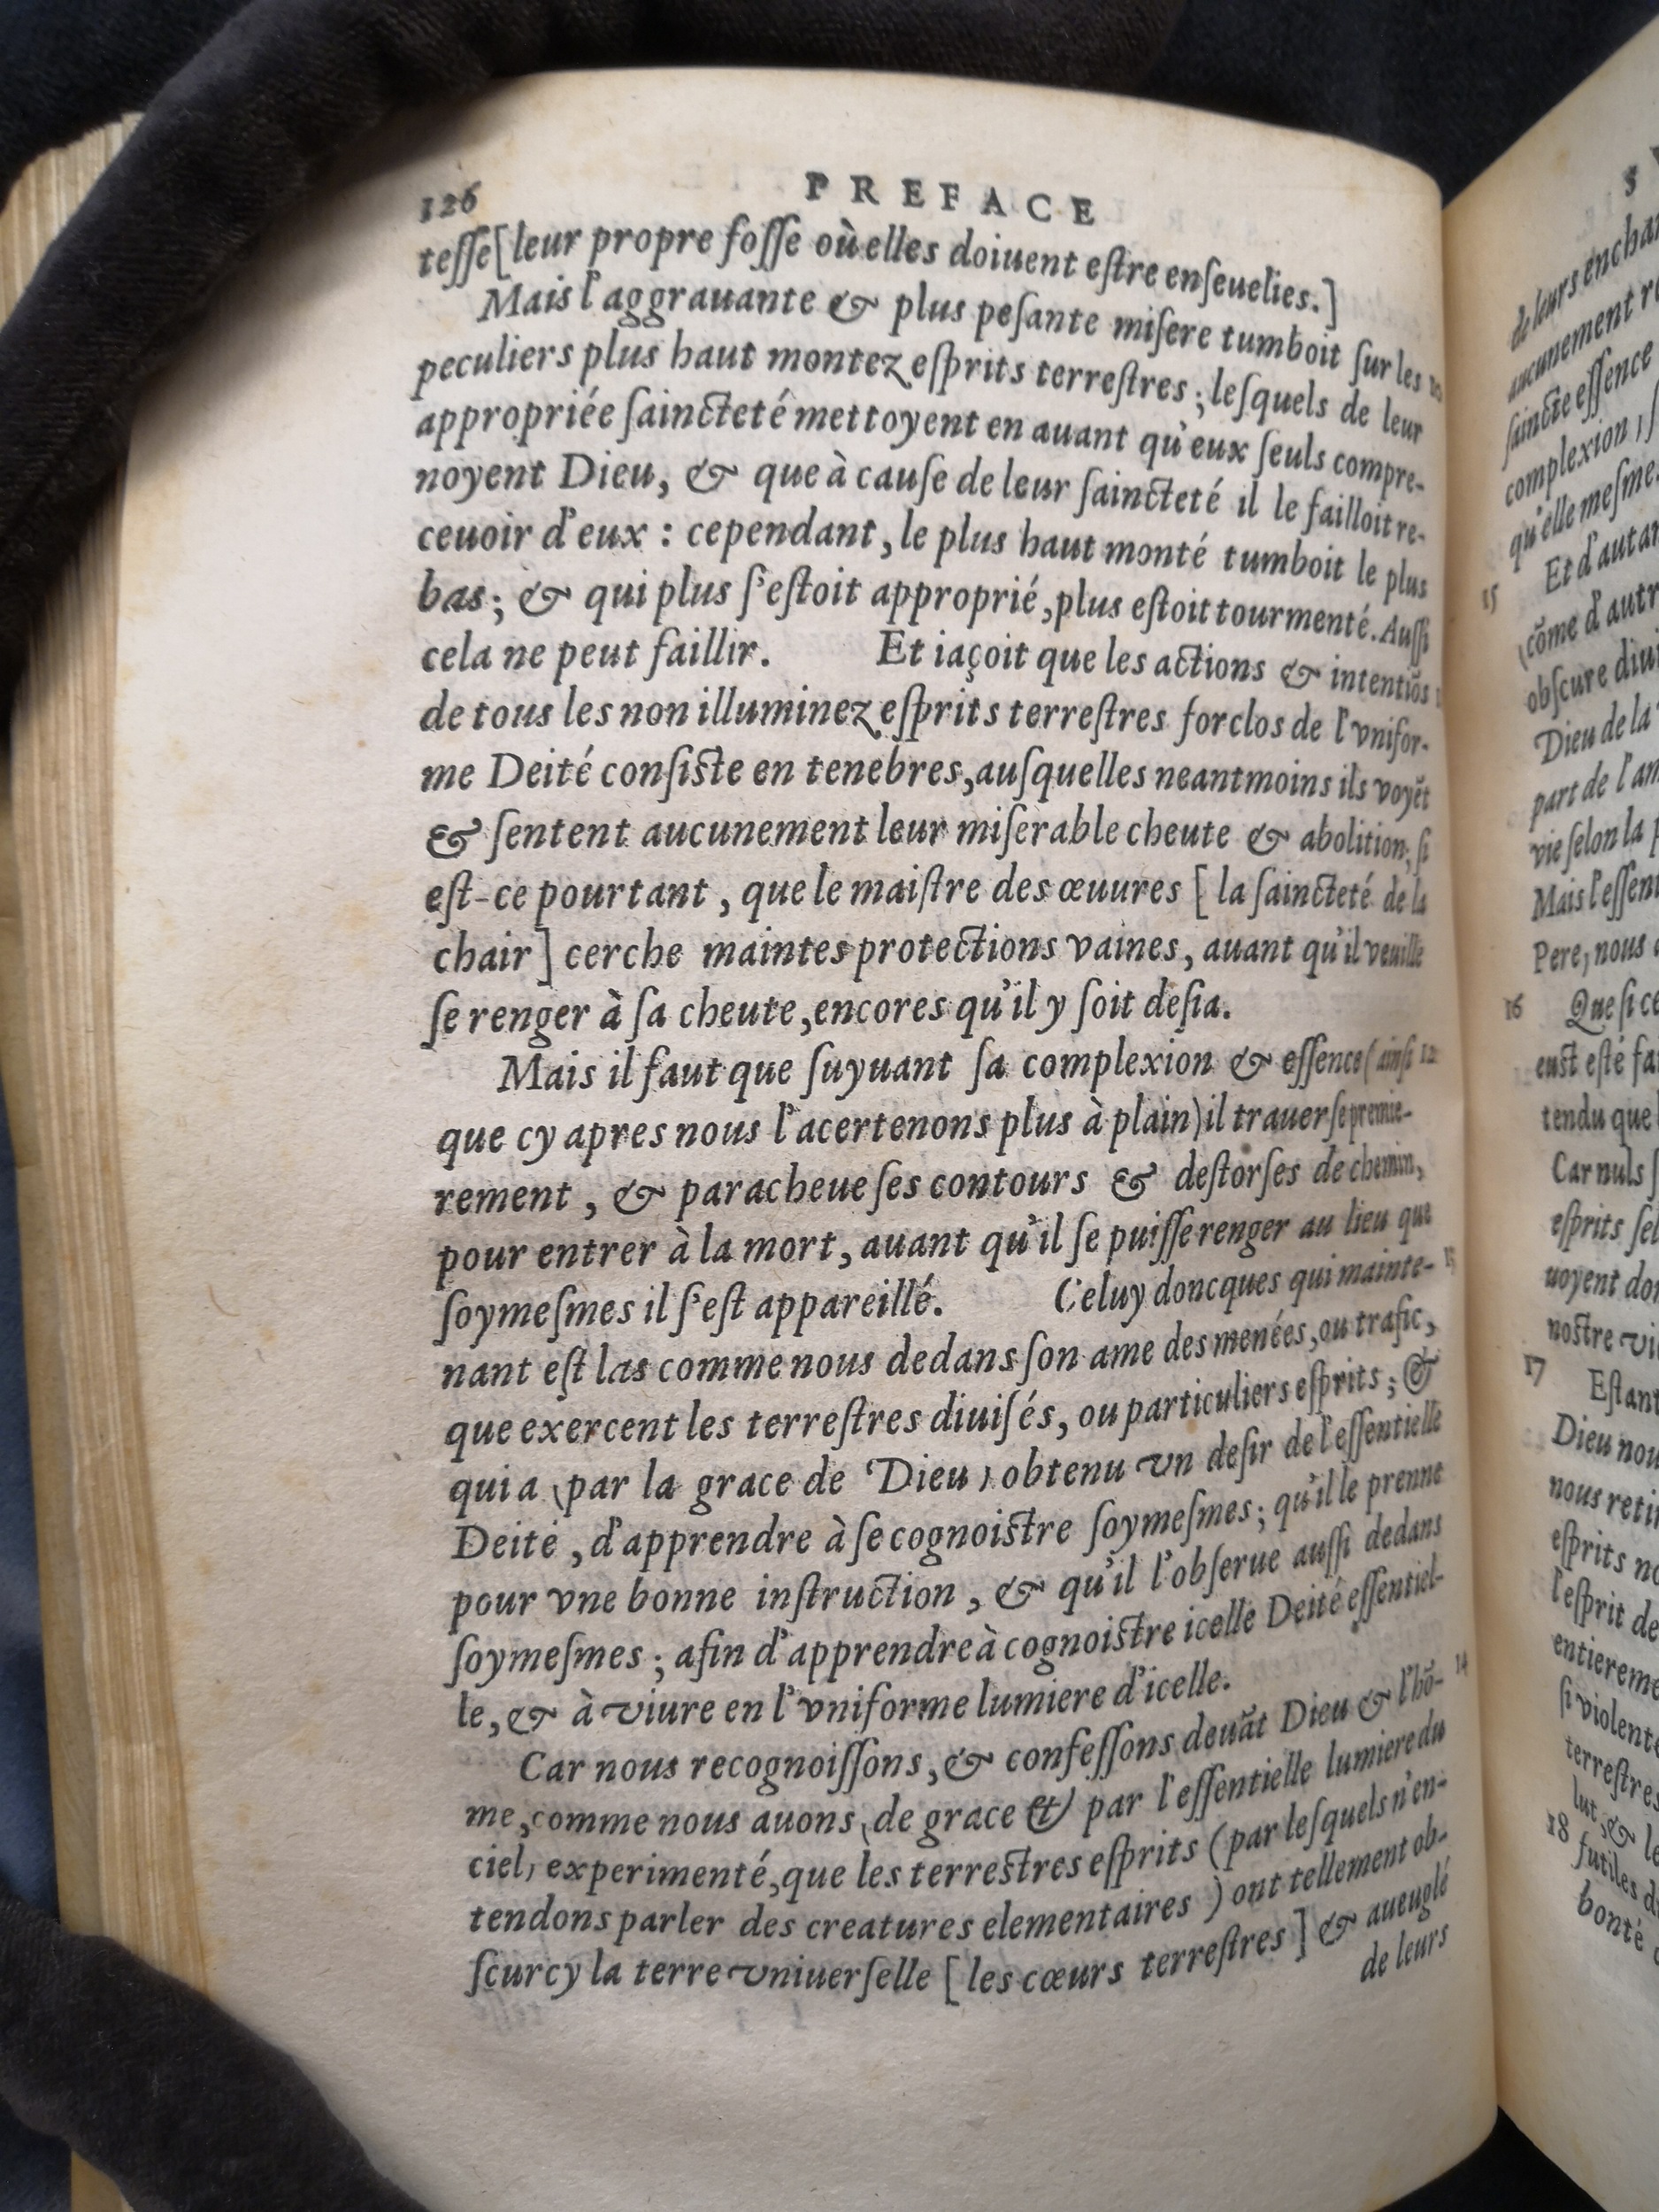 126 PREFACE
teſſe [leur propre foſſe où elles doiuent eſtre enſeuelies.]
Mais l'aggrauante & plus peſante miſere tumboit ſur les 10
peculiers plus haut montez eſprits terreſtres ; leſquels de leur
appropriée ſaincteté mettoyent en auant qu'eux ſeuls compre-
noyent Dieu, & que à cauſe de leur ſaincteté il le failloit re-
ceuoir d'eux : cependant, le plus haut monté tumboit le plus
bas ; & qui plus ſ'eſtoit approprié, plus eſtoit tourmenté. Auſſi
cela ne peut faillir. Et iaçoit que les actions & intentiõs
de tous les non illuminez eſprits terreſtres forclos de l'vnifor-
me Deité conſiſte en tenebres, auſquelles neantmoins ils voyẽt
& ſentent aucunement leur miſerable cheute & abolition ; ſi
eſt-ce pourtant, que le maiſtre des œuures [ la ſaincteté de la
chair ] cerche maintes protections vaines, auant qu'il veuille
ſe renger à ſa cheute, encores qu'il y ſoit deſia.
Mais il faut que ſuyuant ſa complexion & eſſence (ainſi 12
que cy apres nous l'acertenons plus à plain) il trauerſe premie-
rement, & paracheue ſes contours & deſtorſes de chemin,
pour entrer à la mort, auant qu'il ſe puiſſe renger au lieu que
ſoymeſmes il ſ'eſt appareillé. Celuy doncques qui mainte- 13
nant eſt las comme nous dedans ſon ame des menées, ou trafic,
que exercent les terreſtres diuiſés, ou particuliers eſprits ; &
qui a (par la grace de Dieu) obtenu vn deſir de l'eſſentielle
Deité, d'apprendre à ſe cognoiſtre ſoymeſmes ; qu'il le prenne
pour vne bonne inſtruction, & qu'il l'obſerue auſſi dedans
ſoymeſmes ; afin d'apprendre à cognoiſtre icelle Deité eſſentiel-
le, & à viure en l'vniforme lumiere d'icelle.
Car nous recognoiſſons, & confeſſons deuãt Dieu & l'hõ- 14
me, comme nous auons (de grace & par l'eſſentielle lumiere du
ciel) experimenté, que les terreſtres eſprits (par leſquels n'en-
tendons parler des creatures elementaires ) ont tellement ob-
ſcurcy la terre vniuerſelle [ les cœurs terreſtres ] & aueuglé
de leurs
de leurs
aucunement
ſaincte eſſence
complexion,
qu'elle meſme
15 Et
(cõme d'autr
obſcure
Dieu de la
part de l'
vie ſelon la
Mais
Pere, nous
16 Que ſi
euſt eſté
tendu que
Car nuls
eſprits
noſtre
17 Eſtant
Dieu
nous
eſprits
l'eſprit de
ſi
lut, &
18 futiles
bonté